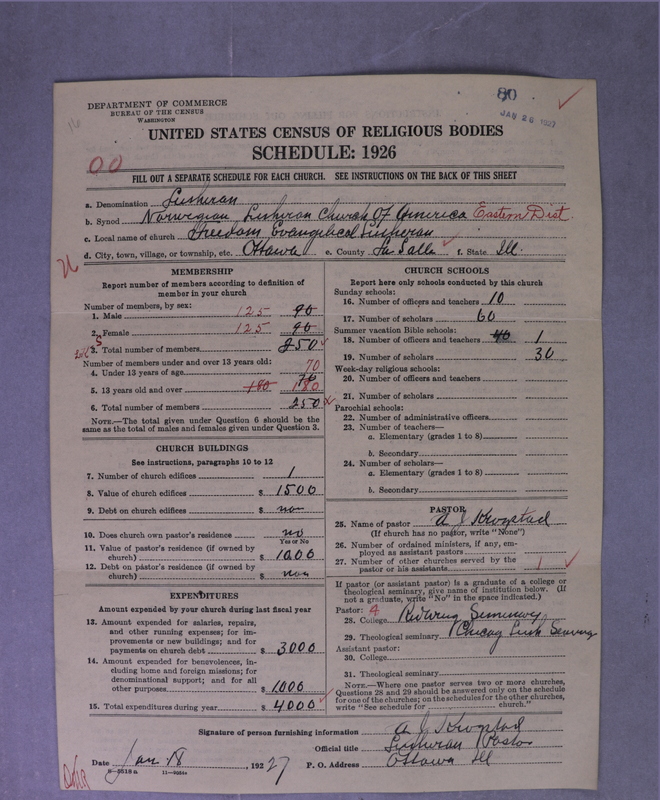 80
JAN 26 1927
DEPARTMENT OF COMMERCE
BUREAU OF THE CENSUS
WASHINGTON
UNITED STATES CENSUS OF RELIGIOUS BODIES
SCHEDULE: 1926
00
FILL OUT A SEPARATE SCHEDULE FOR EACH CHURCH. SEE INSTRUCTIONS ON THE BACK OF THIS SHEET
a. Denomination Lutheran
b. Synod Norwegian Lutheran Church Of America Eastern Dist
c. Local name of church Freedom Evangelical Lutheran
d. City, town, village, or township, etc. Ottawa e. County La Salle f. State Ill.
MEMBERSHIP
Report number of members according to definition of member in your church
Number of members, by sex:
1. Male 125 90
2. Female 125 90
3. Total number of members 250
Number of members under and over 13 years old:
4. Under 13 years of age 70
5. 13 years old and over 180 180
6. Total number of members 250
NOTE.—The total given under Question 6 should be the
same as the total of males and females given under Question 3.
CHURCH BUILDINGS
See instructions, paragraphs 10 to 12
7. Number of church edifices 1
8. Value of church edifices $ 1500
9. Debt on church edifices $ non
10. Does church own pastor's residence no
Yes or No
11. Value of pastor's residence (if owned by
church) $ 1000
12. Debt on pastor's residence (if owned by
church) $ non
EXPENDITURES
Amount expended by your church during last fiscal year
13. Amount expended for salaries, repairs,
and other running expenses; for im-
provements or new buildings; and for
payments on church debt $ 3000
14. Amount expended for benevolences, in-
cluding home and foreign missions; for
denominational support; and for all
other purposes $ 1000
15. Total expenditures during year $ 4000
CHURCH SCHOOLS
Report here only schools conducted by this church
Sunday schools:
16. Number of officers and teachers 10
17. Number of scholars 60
Summer vacation Bible schools:
18. Number of officers and teachers 40 1
19. Number of scholars 30
Week-day religious schools:
20. Number of officers and teachers
21. Number of scholars
Parochial schools:
22. Number of administrative officers
23. Number of teachers—
a. Elementary (grades 1 to 8)
b. Secondary
24. Number of scholars—
a. Elementary (grades 1 to 8)
b. Secondary
PASTOR
25. Name of pastor A J Krogstad
(If church has no pastor, write "None")
26. Number of ordained ministers, if any, em-
ployed as assistant pastors
27. Number of other churches served by the
pastor or his assistants 1
If pastor (or assistant pastor) is a graduate of a college or
theological seminary, give name of institution below. (If
not a graduate, write "No" in the space indicated.)
Pastor: 4
28. College Red Wing Seminary
29. Theological seminary Chicag Luth Seminary
Assistant pastor:
30. College
31. Theological seminary
NOTE.—Where one pastor serves two or more churches,
Questions 28 and 29 should be answered only on the schedule
for one of the churches; on the schedules for the other churches,
write "See schedule for church."
Signature of person furnishing information A J Krogstad
Official title Lutheran Pastor
Date Jan 18, 1927 P. O. Address Ottawa Ill